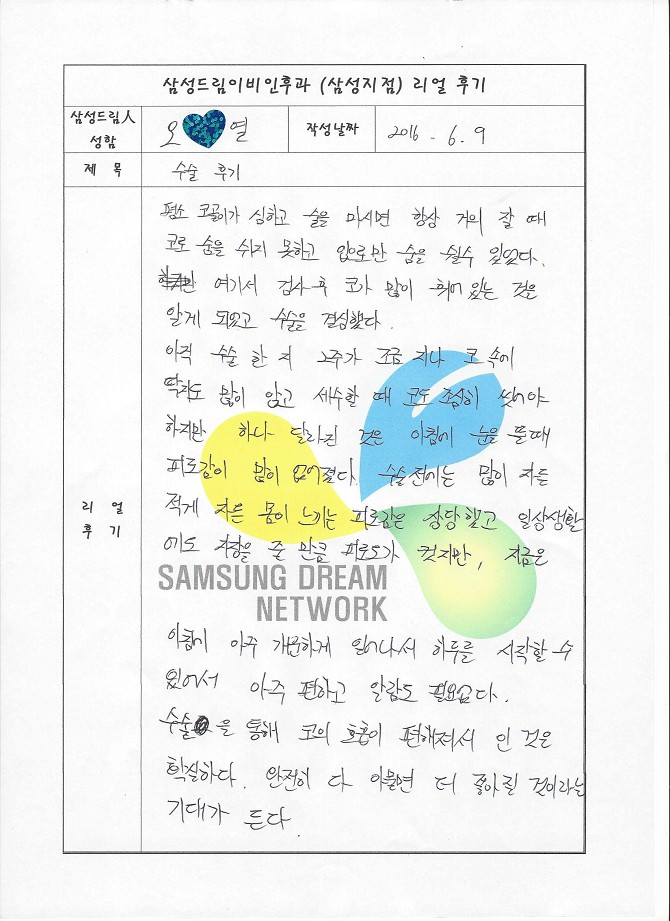 삼성드림이비인후과 (삼성지점) 리얼 후기
삼성드림人
성함
오 열
작성날짜
2016 . 6 . 9
제 목
수술 후기
평소 코골이가 심하고 술을 마시면 항상 거의 잘 때
코로 숨을 쉬지 못하고 입으로만 숨을 쉴수 있었다.
여기서 검사후 코가 많이 휘어 있는 것을
알게 되었고 수술을 결심했다.
아직 수술 한 지 2주가 조금 지나 코 속에
딱지도 많이 앉고 세수할 때 코도 조심히 씻어야
하지만 하나 달라진 것은 아침에 눈을 뜰때
피로감이 많이 없어졌다. 수술전에는 많이 자든
적게 자든 몸이 느끼는 피로감은 상당했고 일상생활
에도 지장을 줄 만큼 피로도가 컷지만, 지금은
SAMSUNG DREAM
NETWORK
아침에 아주 개운하게 일어나서 하루를 시작할 수
있어서 아주 편하고 알람도 필요없다.
수술 을 통해 코의 호흡이 편해져서 인 것은
확실하다. 완전히 다 아물면 더 좋아질 것이라는
기대가 든다.
리 얼
후 기